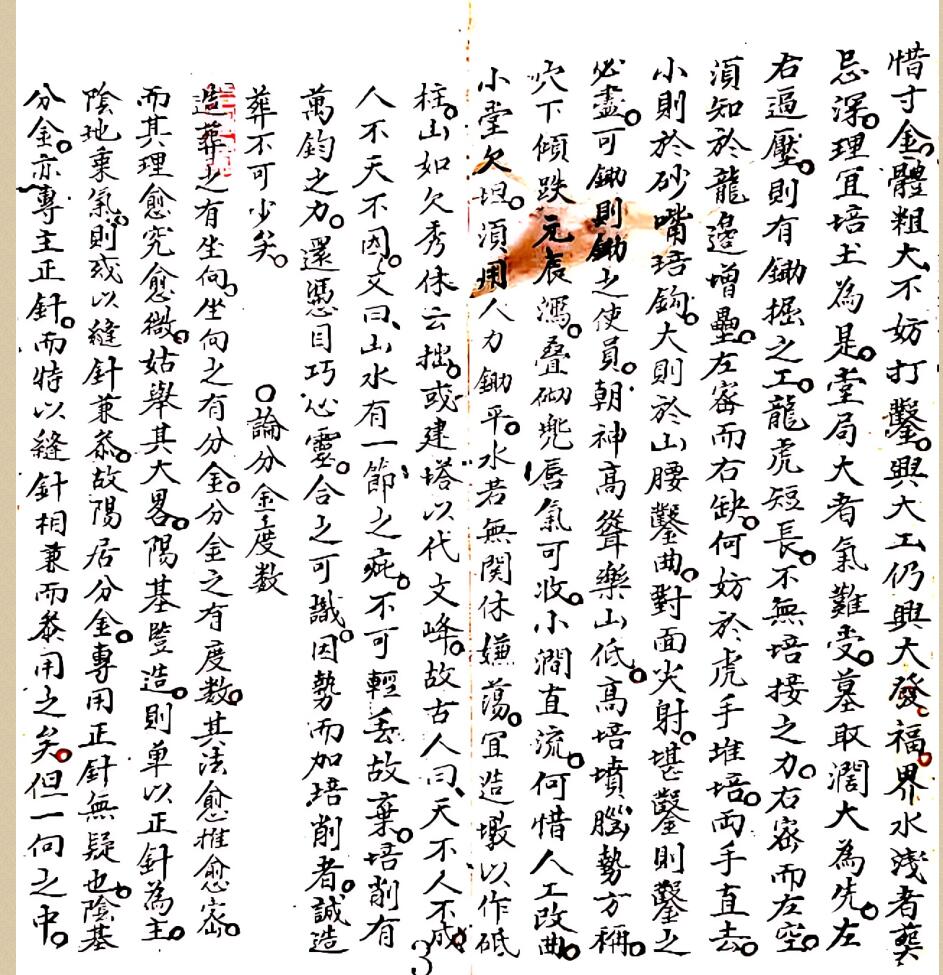 惜寸金。體粗大不妨打鑿。興大工仍興大發福。界水淺者葬
忌深。理宜培土為是。堂局大者氣難受。墓取濶大為先。左
右逼壓。則有鋤掘之工。龍虎短長。不無培接之力。右密而左空。
須知於龍邊增壘。左密而右缺。何妨於虎手堆培。両手直去。
小則於砂嘴培鈎。大則於山腰鑿曲。對面尖射。堪鑿則鑿之
必盡。可鋤則鋤之使員。朝神高聳樂山低。高培墳腦勢方稱。
穴下傾跌元辰瀉。叠砌兠唇氣可收。小澗直流。何惜人工改曲。
小堂欠坦。須用人力鋤平。水若無関休嫌蕩。宜造墩以作砥
柱。山如欠秀休云拙。或建塔以代文峰。故古人曰、天不人不成。
人不天不因。又曰、山水有一節之疵。不可輕丢故棄。培削有
萬鈞之力。還憑目巧心靈。合之可識。因勢而加培削者。誠造
葬不可少矣。
○論分金度数
造葬之有坐向。坐向之有分金。分金之有度数。其法愈推愈密。
而其理愈究愈微。姑舉其大畧。陽基豎造。則单以正針為主。
陰地乗氣。則或以縫針兼叅。故陽居分金。專用正針無疑也。陰基
分金。亦專主正針。而特以縫針相兼而叅用之矣。但一向之中。
3